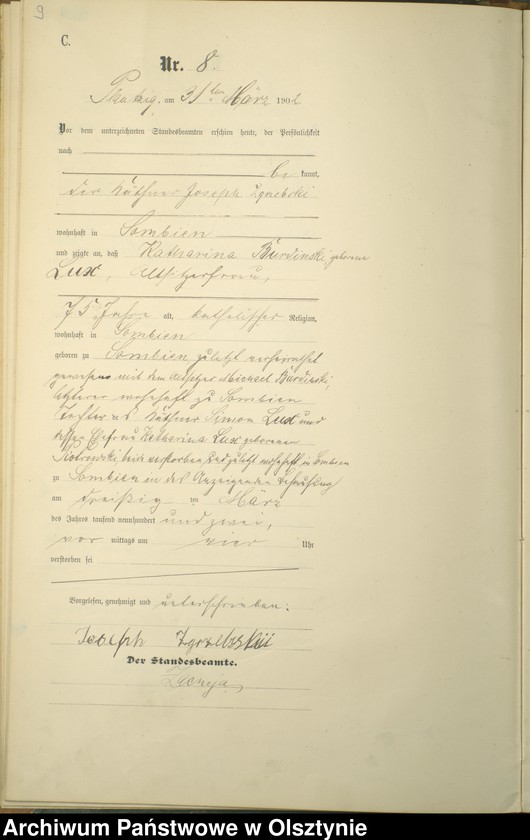 9
C.
Nr. 8.
am 31ten März 1902
Vor dem unterzeichneten Standesbeamten erschien heute, der Persönlichkeit
nach
be kannt,
der Käthner Joseph
wohnhaft in Sombien
und zeigte an, daß Katharina Burdinski geborene
Lux, Altsitzerfrau,
75 Jahre alt, katholischer Religion,
wohnhaft in Sombien
geboren zu Sombien zuletzt verheirathet
gewesen mit dem Altsitzer Michael Burdinski,
letzterer wohnhaft zu Sombien
Tochter des Käthner Simon Lux und
dessen Ehefrau Katharina Lux geborenen
Piotrowski beide verstorben und zuletzt wohnhaft in Sombien
zu Sombien in des Anzeigenden Behausung
am dreißig ten März
des Jahres tausend neunhundert und zwei,
vor mittags um vier Uhr
verstorben sei
Vorgelesen, genehmigt und unterschrieben.
Joseph Zgrzebski
Der Standesbeamte.
Archiwum Państwowe w Olsztynie